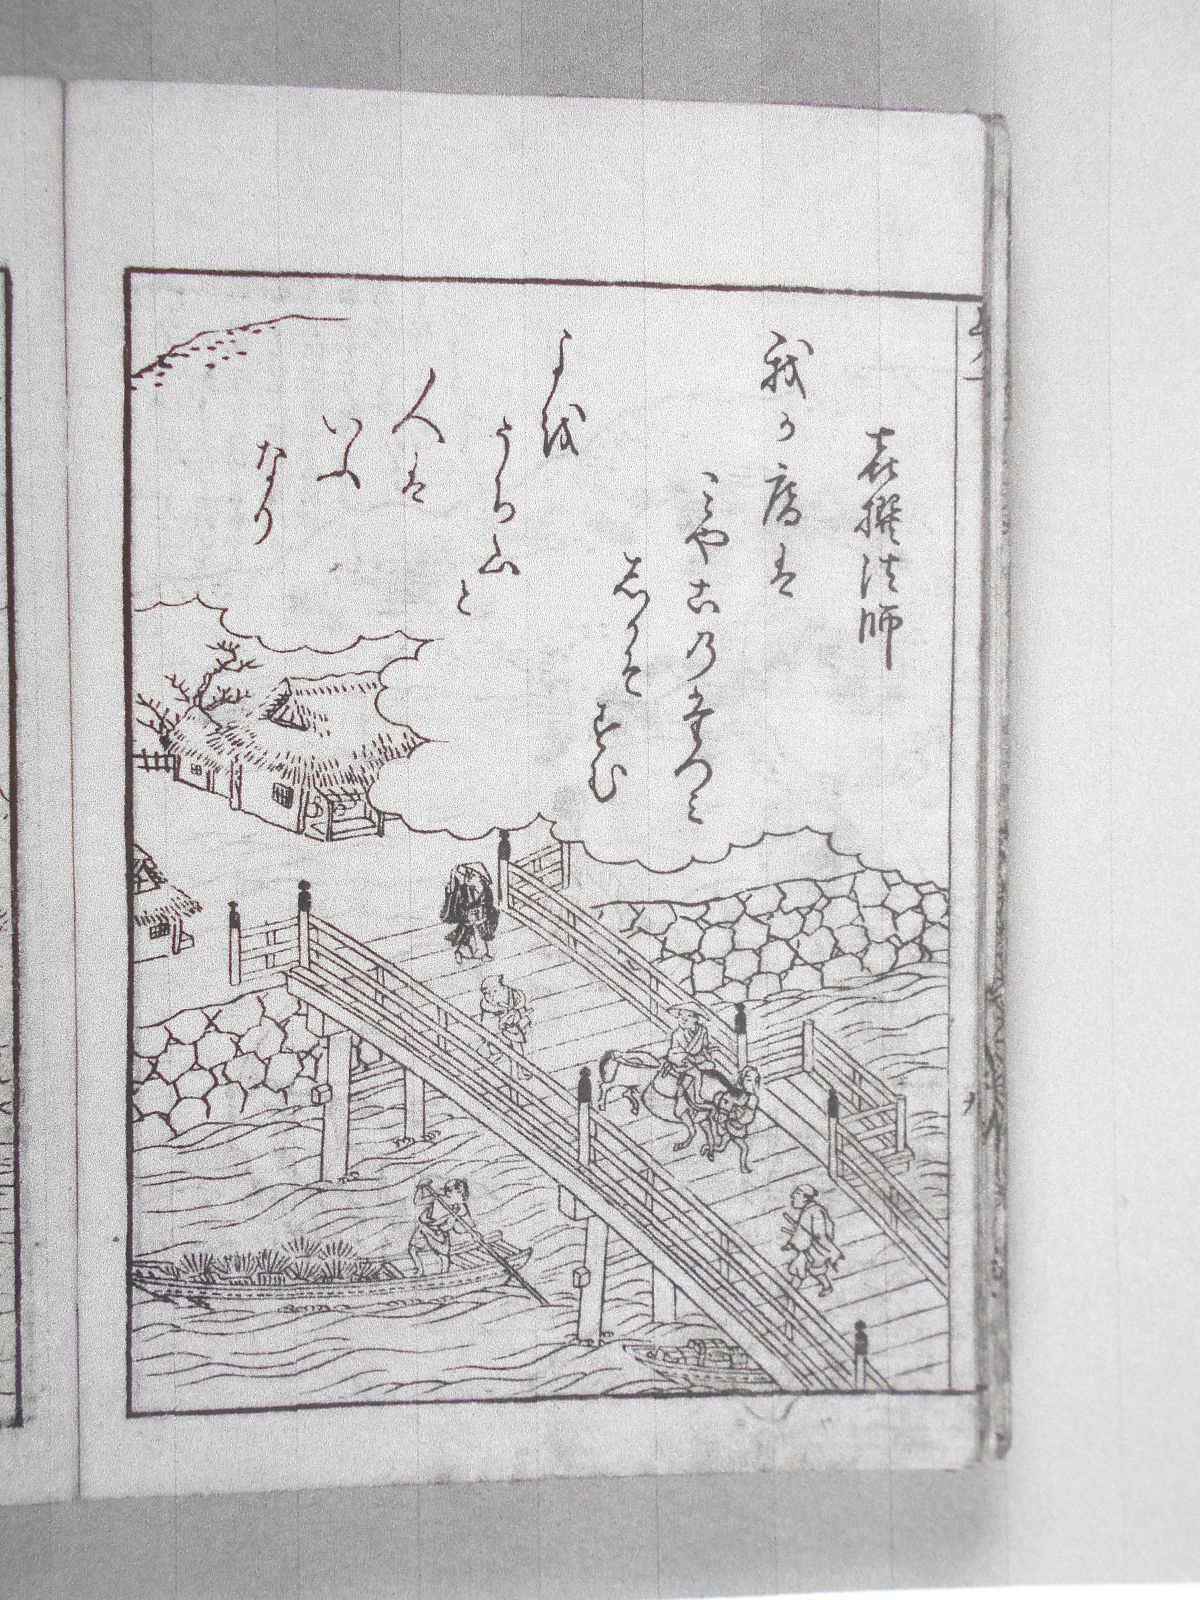 喜撰法師
我か庵は
みやこのたつみ
しかそすむ
よを
うち山と
人は
いふ
なり